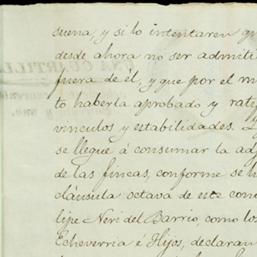 suena, y si lo intentaren q
desde ahora no ser admiti
fuera de él, y que por el m
to haberla aprobado y rate
vinculos y estabilidades.
se llegue á consumar la ad
de las fincas, conforme se h
cláusula octava de este con
lipe Neri del Barrio, como lo
Echeverria é Hijos, declaran